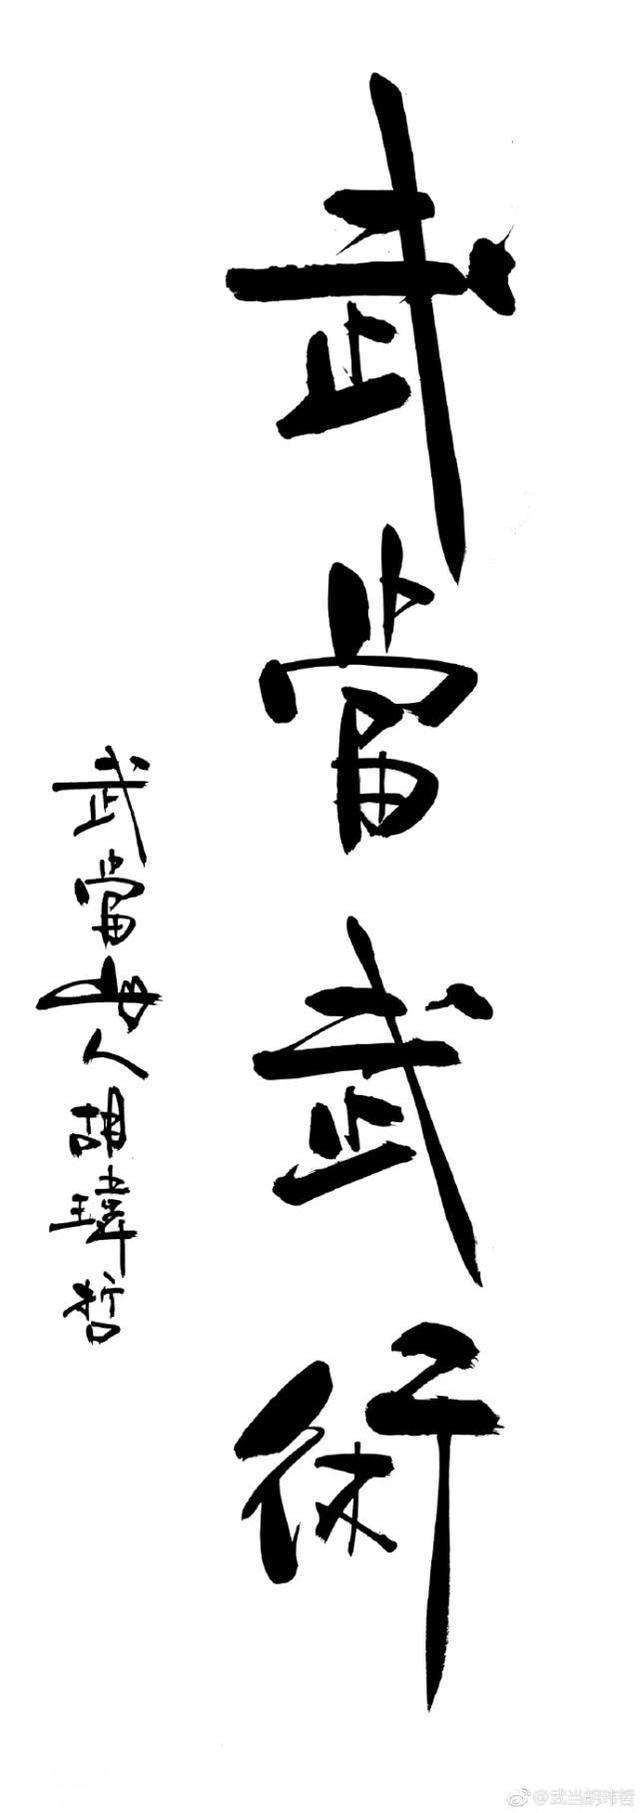 武當武術
武當山人胡瑋哲
@武当胡玮哲